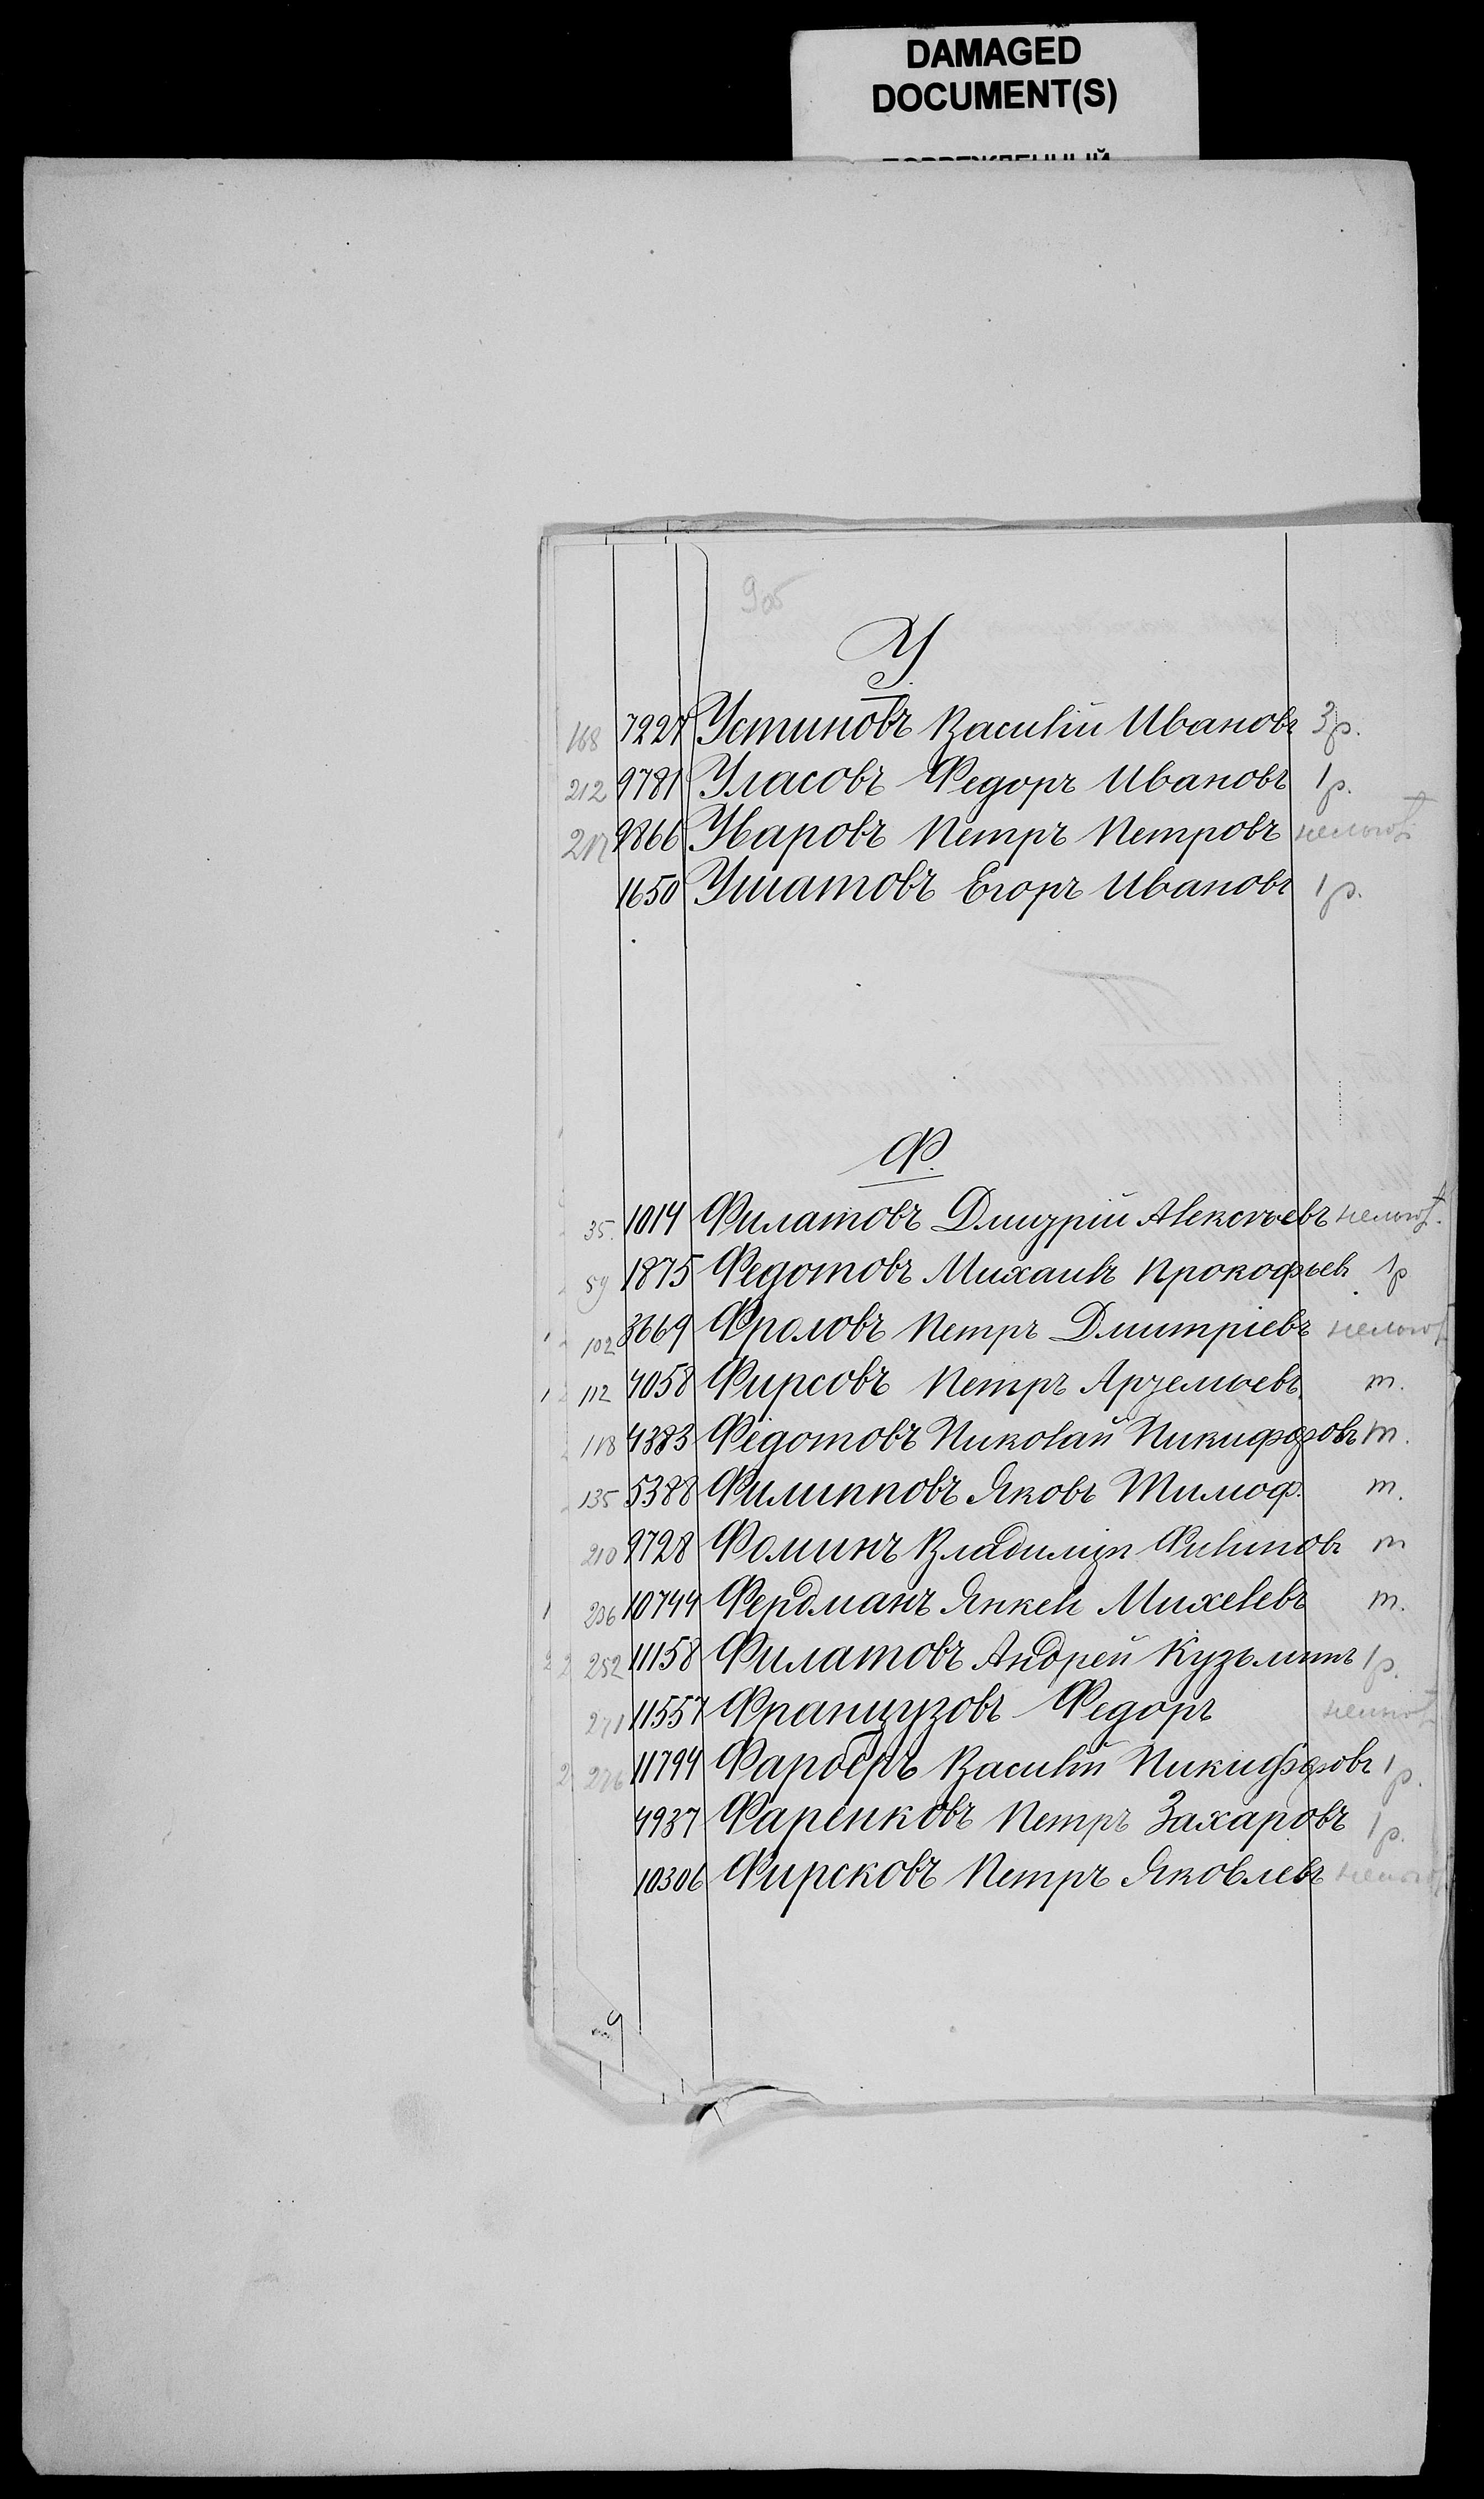 DAMAGED
DOCUMENT(S)
У.
168 7227 Устиновъ Василій Ивановъ 3 р.
212 9781 Уласовъ Федоръ Ивановъ 1 р.
217 9866 Уваровъ Петръ Петровъ
1650 Ушатовъ Егоръ Ивановъ 1 р.
Ф.
35. 1014 Филатовъ Дмитрій Алексѣевъ
59 1875 Федотовъ Михаилъ Прокофьев 1 р
102 3669 Фроловъ Петръ Дмитріевъ
1 112 4058 Фирсовъ Петръ Артемьевъ т.
118 4383 Федотовъ Николай Никифоровъ т.
135 5388 Филипповъ Яковъ Тимоф. т.
210 9728 Фоминъ Владиміръ Филиповъ т
1 236 10744 Фердманъ Янкель Михелевъ т.
2 2 252 11158 Филатовъ Андрей Кузьминъ 1 р.
271 11557 Французовъ Федоръ
2 276 11794 Фарберъ Василій Никифоровъ 1 р.
4937 Фаренковъ Петръ Захаровъ 1 р.
10306 Фирсковъ Петръ Яковлевъ